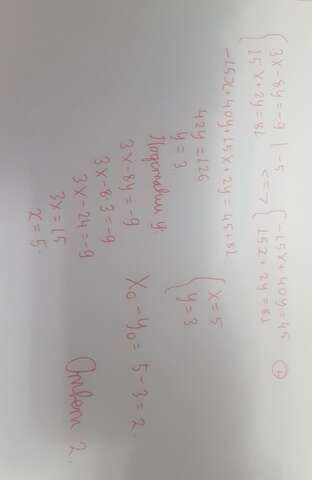 { 3x-8y=-9 | ·-5 <=> { -15x+40y=45
{ 15x+2y=81 { 15x+2y=81 +
-15x+40y+15x+2y=45+81
42y=126
y=3
Подставим y.
3x-8y=-9
3x-8·3=-9
3x-24=-9
3x=15
x=5.
{ x=5
{ y=3
x₀-y₀=5-3=2.
Ответ 2.